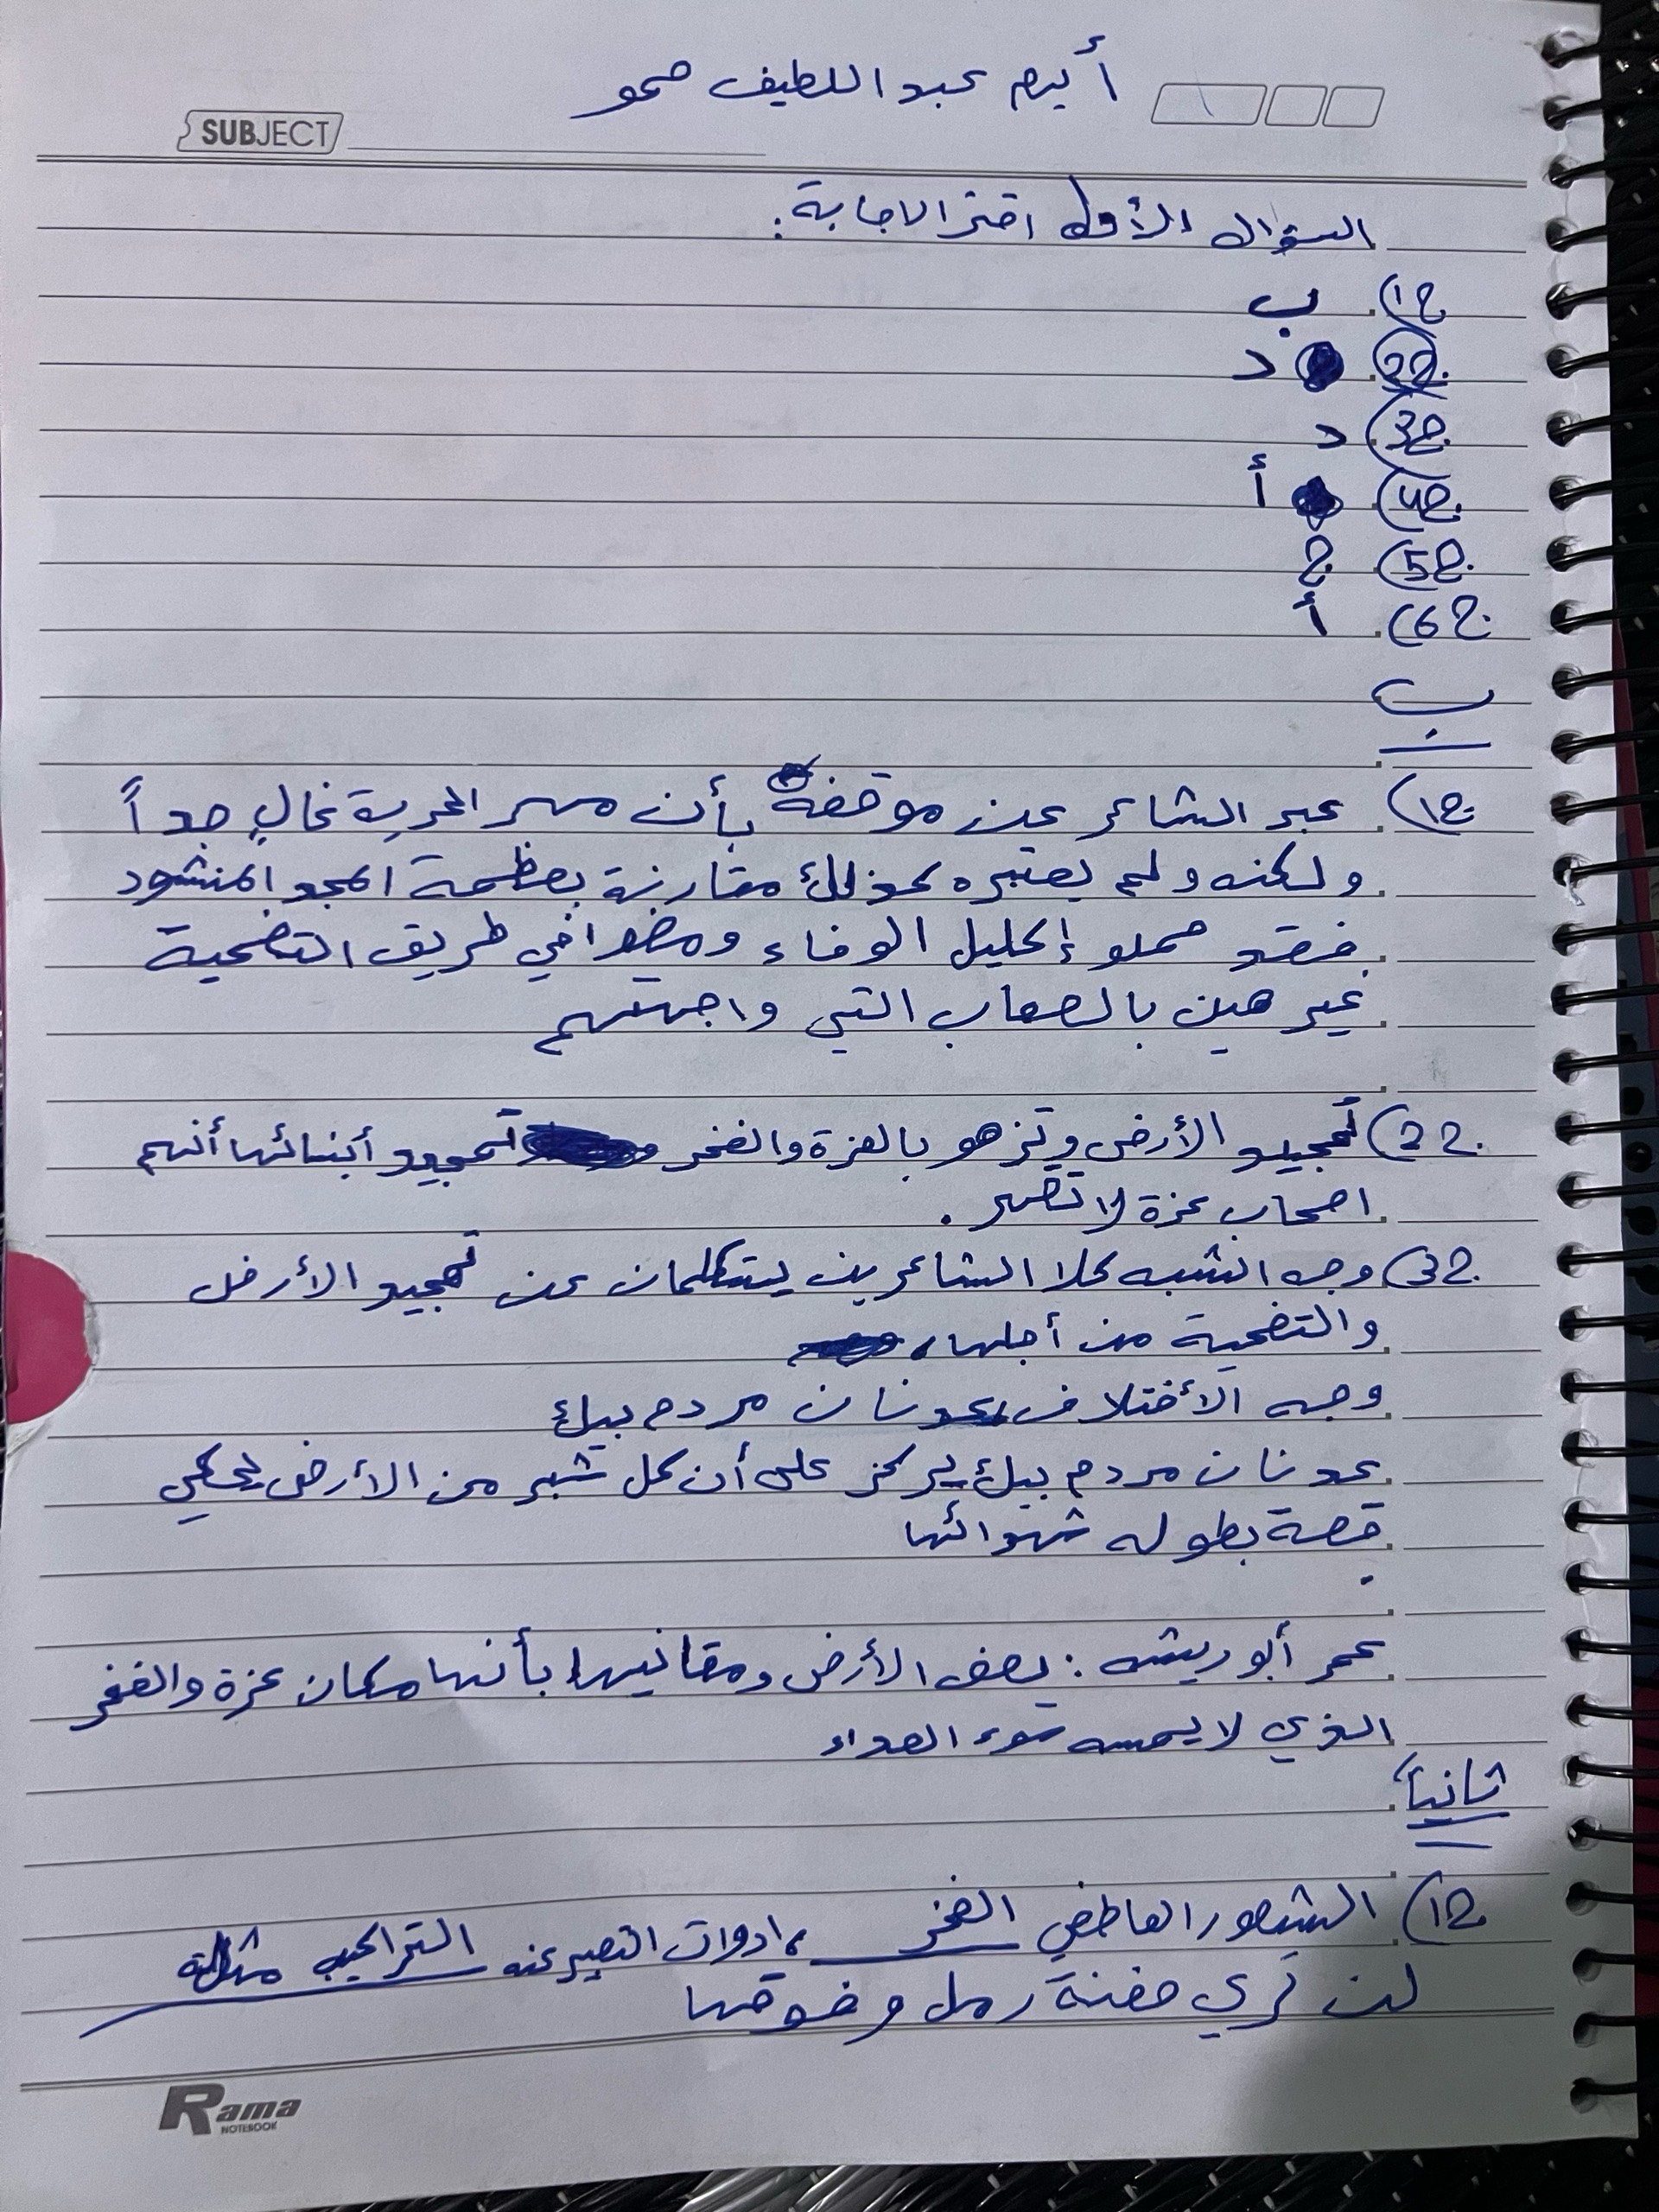 أيهم عبد اللطيف حمو
SUBJECT
السؤال الأول اختر الاجابة:
ج1) ب
ج2) د
ج3) د
ج4) أ
ج5) ج
ج6) أ
ب
ج1) عبر الشاعر عن موقفه بأن مهر الحرية غالٍ جداً
ولكنه ولم يعتبره كذلك مقارنة بعظمة المجد المنشود
فقد حملو إكليل الوفاء ومضوا في طريق التضحية
غير هين بالصعاب التي واجهتهم
ج2) تمجيد الأرض وتزهو بالعزة والفخر وتمجيد أبنائها أنهم
اصحاب عزة لا تقهر.
ج3) وجه الشبه كلا الشاعرين يتكلمان عن تمجيد الأرض
والتضحية من أجلها،
وجه الأختلاف عدنان مردم بيك
عدنان مردم بيك يركز على أن كل شبر من الأرض يحكي
قصة بطوله شهدائها
عمر أبو ريشه : يصف الأرض ومغانيها بأنها مكان عزة والفخر
الذي لا يمسه سوء العداء
ثانياً:
ج1) الشعور العاطفي الفخر، ادوات التعبير عنه التراكيب مثاله
لن تري حفنة رمل فوقها
Rama
NOTEBOOK